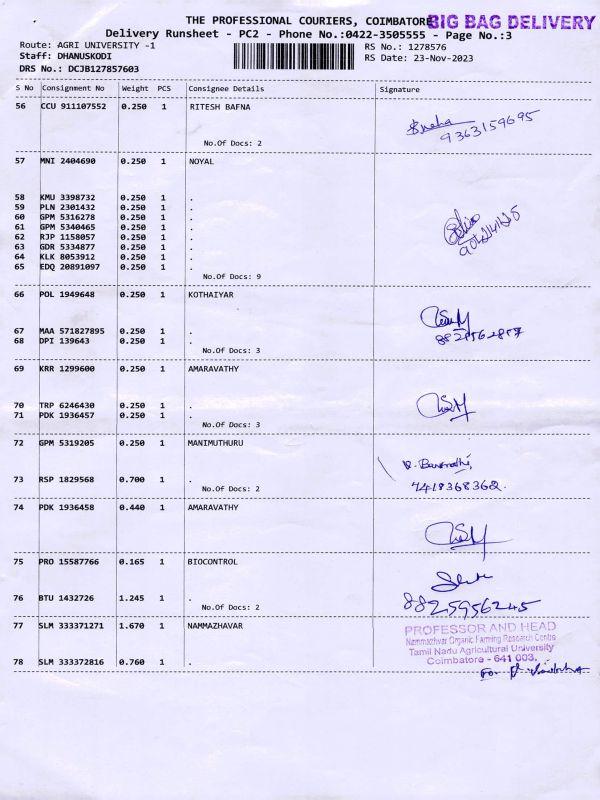 THE PROFESSIONAL COURIERS, COIMBATORE
BIG BAG DELIVERY
Delivery Runsheet - PC2 - Phone No.:0422-3505555 - Page No.:3
Route: AGRI UNIVERSITY -1
RS No.: 1278576
Staff: DHANUSKODI
RS Date: 23-Nov-2023
DRS No.: DCJB127857603
S No Consignment No Weight PCS Consignee Details Signature
56 CCU 911107552 0.250 1 RITESH BAFNA
Sneha
9363159695
No.Of Docs: 2
57 MNI 2404690 0.250 1 NOYAL
58 KMU 3398732 0.250 1 .
59 PLN 2301432 0.250 1 .
60 GPM 5316278 0.250 1 .
61 GPM 5340465 0.250 1 .
62 RJP 1158057 0.250 1 .
63 GDR 5334877 0.250 1 .
64 KLK 8053912 0.250 1 .
65 EDQ 20891097 0.250 1 .
No.Of Docs: 9
66 POL 1949648 0.250 1 KOTHAIYAR
67 MAA 571827895 0.250 1 .
68 DPI 139643 0.250 1 .
No.Of Docs: 3
69 KRR 1299600 0.250 1 AMARAVATHY
70 TRP 6246430 0.250 1 .
71 PDK 1936457 0.250 1 .
No.Of Docs: 3
72 GPM 5319205 0.250 1 MANIMUTHURU
73 RSP 1829568 0.700 1 .
7418368362.
No.Of Docs: 2
74 PDK 1936458 0.440 1 AMARAVATHY
75 PRO 15587766 0.165 1 BIOCONTROL
76 BTU 1432726 1.245 1 .
8825956245
No.Of Docs: 2
77 SLM 333371271 1.670 1 NAMMAZHAVAR
PROFESSOR AND HEAD
Nammazhvar Organic Farming Research Centre
Tamil Nadu Agricultural University
Coimbatore - 641 003.
78 SLM 333372816 0.760 1 .
For